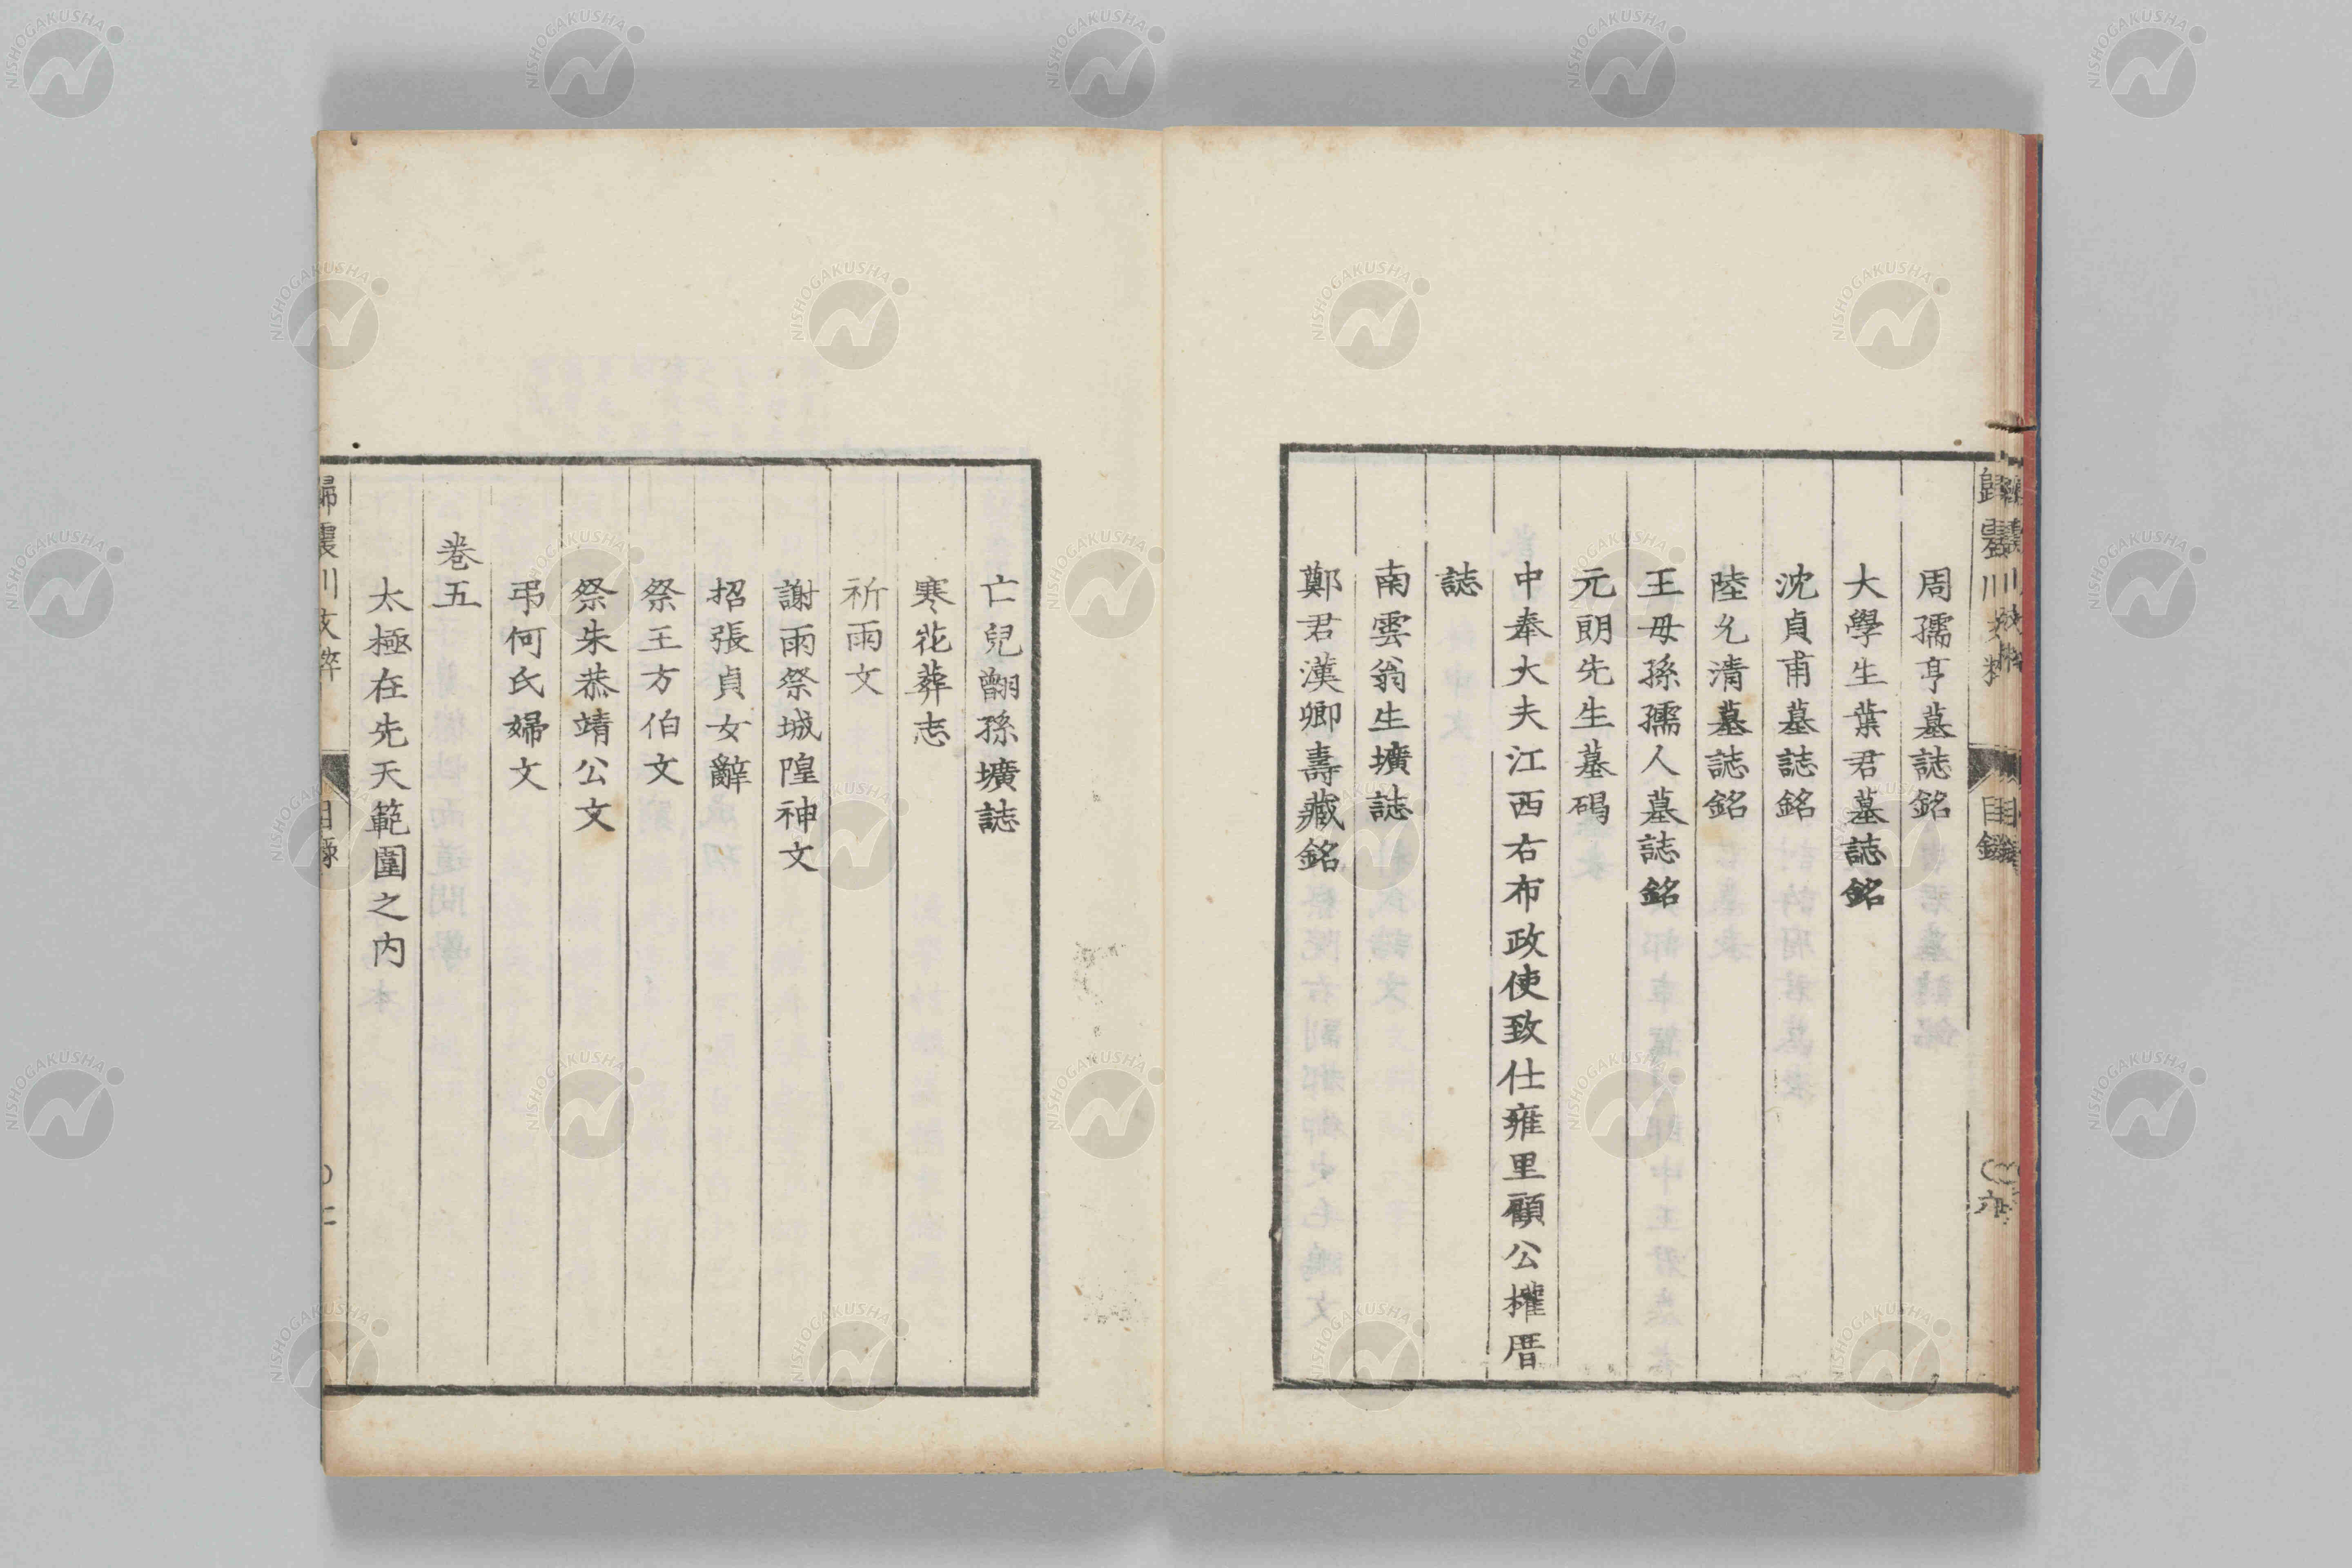 周孺亨墓誌銘
大學生葉君墓誌銘
沈貞甫墓誌銘
陸允清墓誌銘
王母孫孺人墓誌銘
元朗先生墓碣
中奉大夫江西右布政使致仕雍里顧公權厝
誌
南雲翁生壙誌
鄭君漢卿壽藏銘
亡兒䎖孫壙誌
寒花葬志
祈雨文
謝雨祭城隍神文
招張貞女辭
祭王方伯文
祭朱恭靖公文
弔何氏婦文
卷五
太極在先天範圍之內
歸震川文粹
目錄
NISHOGAKUSHA